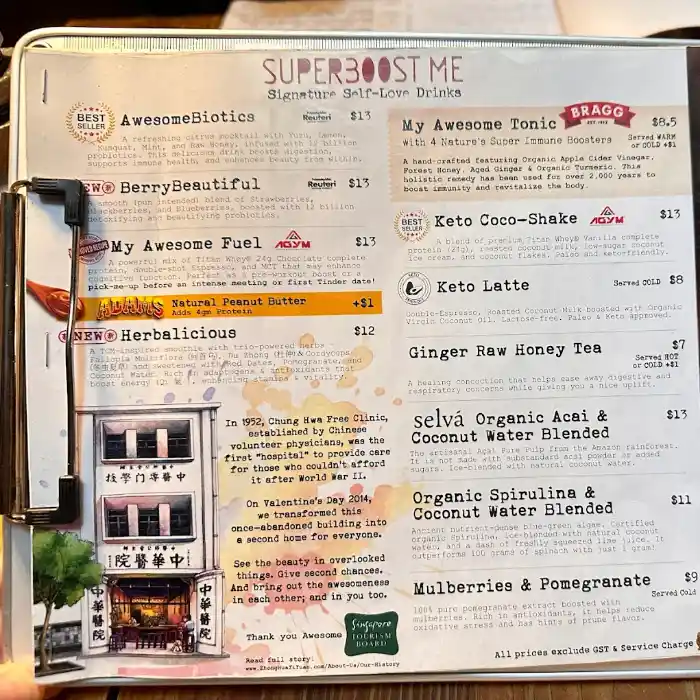 SUPERBOOST ME
Signature Self-Love Drinks
BEST SELLER
AwesomeBiotics
Reuteri
$13
A refreshing citrus mocktail with Yuzu, Lemon,
Kumquat, Mint, and Raw Honey, infused with 12 billion
probiotics. This delicious drink boosts digestion,
supports immune health, and enhances beauty from within.
NEW
BerryBeautiful
Reuteri
$13
A smooth (pun intended) blend of Strawberries,
Blackberries, and Blueberries, boosted with 12 billion
detoxifying and beautifying probiotics.
My Awesome Fuel
AGYM
$13
A powerful mix of Titan Whey® 24g Chocolate complete
protein, double-shot Espresso, and MCT that may enhance
cognitive function. Perfect as a pre-workout boost or a
pick-me-up before an intense meeting or first Tinder date!
ADAMS
Natural Peanut Butter
Adds 4gm Protein
+$1
NEW
Herbalicious
$12
A TCM-inspired smoothie with trio-powered herbs
Fallopia Multiflora (何首乌), Du Zhong (杜仲) & Cordyceps
(冬虫夏草) and sweetened with Red Dates, Pomegranate, and
Coconut Water. Rich in adaptogens & antioxidants that
boost energy enhancing stamina & vitality.
中醫專門學校
中華醫院
中華醫院
中華醫院
In 1952, Chung Hwa Free Clinic,
established by Chinese
volunteer physicians, was the
first "hospital" to provide care
for those who couldn't afford
it after World War II.
On Valentine's Day 2014,
we transformed this
once-abandoned building into
a second home for everyone.
See the beauty in overlooked
things. Give second chances.
And bring out the awesomeness
in each other; and in you too.
Thank you Awesome
Singapore
TOURISM
BOARD
Read full story:
www.ZhongHuaYiYuan.com/About-Us/Our-History
My Awesome Tonic
BRAGG
$8.5
with 4 Nature's Super Immune Boosters
Served WARM
or COLD +$1
A hand-crafted featuring Organic Apple Cider Vinegar,
Forest Honey, Aged Ginger & Organic Turmeric. This
holistic remedy has been used for over 2,000 years to
boost immunity and revitalize the body.
BEST SELLER
Keto Coco-Shake
AGYM
$13
A blend of premium Titan Whey® Vanilla complete
protein (24g), roasted coconut milk, low-sugar coconut
ice cream, and coconut flakes. Paleo and keto-friendly.
Keto Latte
Served COLD
$8
Double-Espresso, Roasted Coconut Milk boosted with Organic
Virgin Coconut Oil. Lactose-free. Paleo & Keto approved.
Ginger Raw Honey Tea
$7
Served HOT
or COLD +$1
A healing concoction that helps ease away digestive and
respiratory concerns while giving you a nice uplift.
selvá Organic Acai &
Coconut Water Blended
$13
The artisanal Açai Pure Pulp from the Amazon rainforest.
It is not made with substandard acai powder or added
sugars. Ice-blended with natural coconut water.
Organic Spirulina &
Coconut Water Blended
$11
Ancient nutrient-dense blue-green algae. Certified
organic Spirulina. Ice-blended with natural coconut
water, and a dash of freshly squeezed lime juice. It
outperforms 100 grams of spinach with just 1 gram!
Mulberries & Pomegranate
$9
Served Cold
100% pure pomegranate extract boosted with
mulberries. Rich in antioxidants, it helps reduce
oxidative stress and has hints of prune flavor.
All prices exclude GST & Service Charge